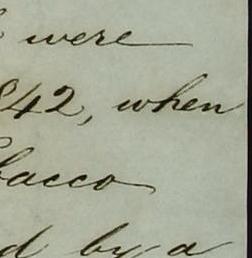 were
842, when
bacco
d by a